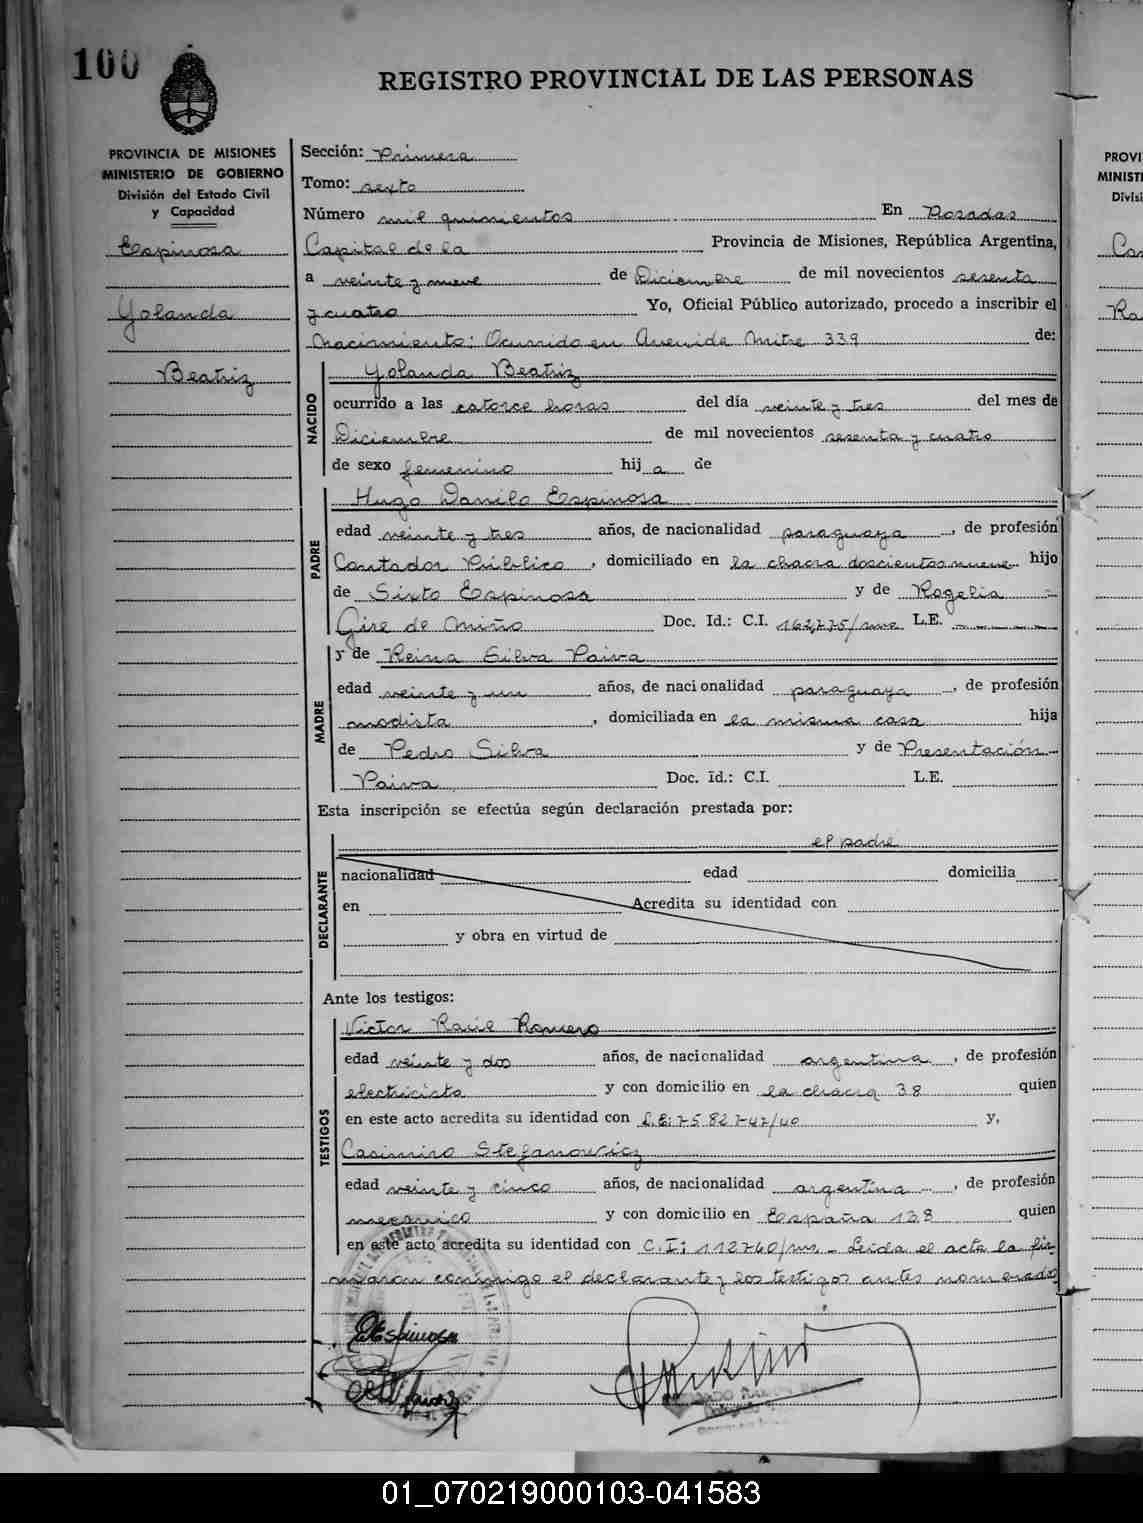 100
REGISTRO PROVINCIAL DE LAS PERSONAS
PROVINCIA DE MISIONES
MINISTERIO DE GOBIERNO
División del Estado Civil
y Capacidad
Espinosa
Yolanda
Beatriz
Sección: Primera
Tomo: sexto
Número mil quinientos En Posadas
Capital de la Provincia de Misiones, República Argentina,
a veinte y nueve de Diciembre de mil novecientos sesenta
y cuatro Yo, Oficial Público autorizado, procedo a inscribir el
Nacimiento: Ocurrido en Avenida Mitre 339 de:
NACIDO
Yolanda Beatriz
ocurrido a las catorce horas del día veinte y tres del mes de
Diciembre de mil novecientos sesenta y cuatro
de sexo femenino hija de
PADRE
Hugo Danilo Espinosa
edad veinte y tres años, de nacionalidad paraguaya, de profesión
Contador Público, domiciliado en la chacra doscientos nueve hijo
de Sixto Espinosa y de Rogelia
de Miño Doc. Id.: C.I. 162,775/ L.E.
MADRE
y de Reina Silva Paiva
edad veinte y un años, de nacionalidad paraguaya, de profesión
modista, domiciliada en la misma casa hija
de Pedro Silva y de Presentación
Paiva Doc. Id.: C.I. L.E.
Esta inscripción se efectúa según declaración prestada por:
DECLARANTE
el padre
nacionalidad edad domicilia
en Acredita su identidad con
y obra en virtud de
Ante los testigos:
TESTIGOS
Victor Raúl Romero
edad veinte y dos años, de nacionalidad argentina, de profesión
electricista y con domicilio en la chacra 38 quien
en este acto acredita su identidad con L.E: 7582747/40 y,
Casimiro Stefanowicz
edad veinte y cinco años, de nacionalidad argentina, de profesión
mecanico y con domicilio en España 138 quien
en este acto acredita su identidad con C.I: 112740/ Leida el acta la fir
maron conmigo el declarante y los testigos antes nombrados
Espinosa
PROVI
MINISTE
Divisi
01_070219000103-041583